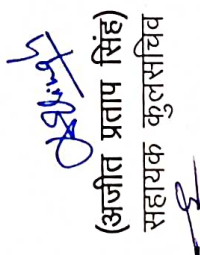 (अजीत प्रताप सिंह)
सहायक कुलसचिव